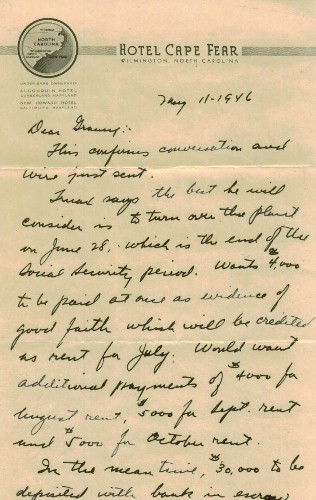 NORTH CAROLINA
CAPE FEAR
HOTEL CAPE FEAR
WILMINGTON, NORTH CAROLINA
UNDER SAME OPERATION
ALGONQUIN HOTEL
CUMBERLAND, MARYLAND
NEW HOWARD HOTEL
BALTIMORE, MARYLAND
May 11-1946
Dear Granny:-
This confirms conversation and
wire just sent.
says the best he will
consider is to turn over the plant
on June 28, - which is the end of the
Social Security period. Wants $4,000
to be paid at once as evidence of
good faith which will be credited
as rent for July. Would want
additional payments of $4000 for
August rent, $5000 for Sept. rent
and $5000 for October rent.
In the mean time, $30,000 to be
deposited with bank in escrow